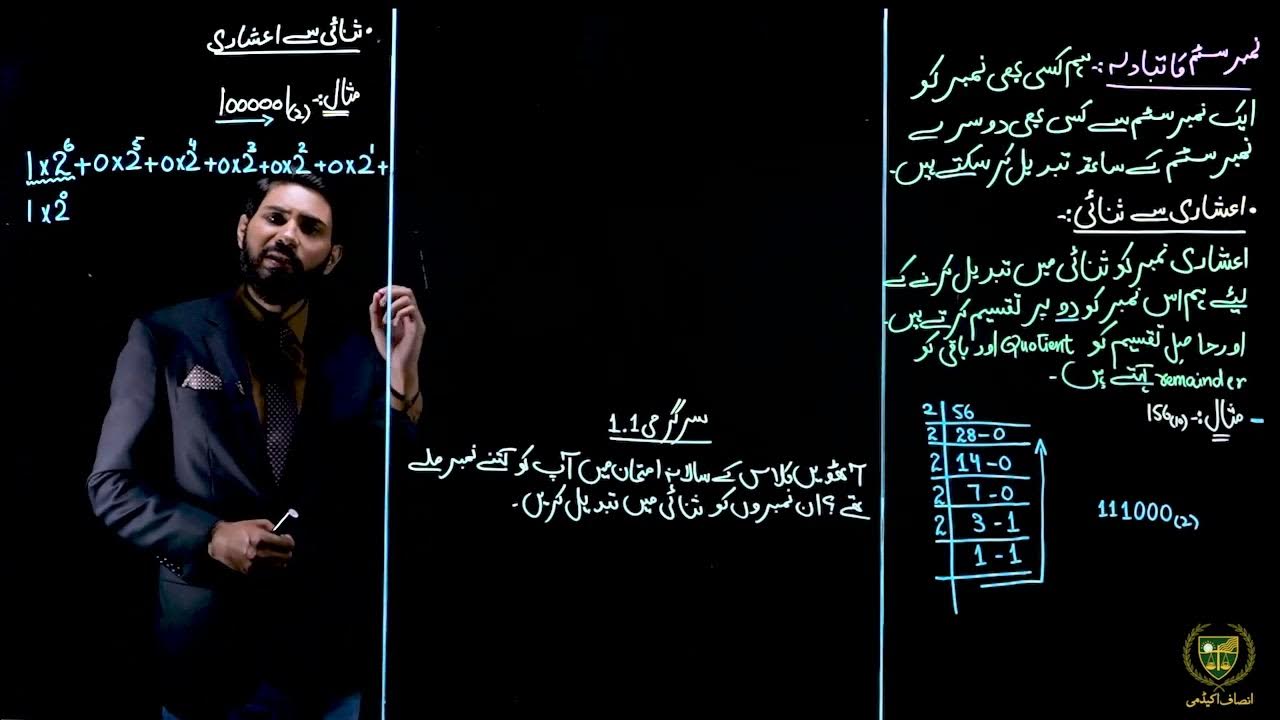 نمبر سسٹم کا تبادلہ:- ہم کسی بھی نمبر کو
ایک نمبر سسٹم سے کسی بھی دوسرے
نمبر سسٹم کے ساتھ تبدیل کر سکتے ہیں۔
• اعشاری سے ثنائی:-
اعشاری نمبر کو ثنائی میں تبدیل کرنے کے
لیئے ہم اس نمبر کو دو پر تقسیم کرتے ہیں۔
اور حاصل تقسیم کو Quotient اور باقی کو
remainder کہتے ہیں۔
مثال:- 156(10)
2 56
2 28-0
2 14-0
2 7-0
2 3-1
1-1
111000(2)
سرگرمی 1.1
کلاس کے سالانہ امتحان میں آپ کو کتنے نمبر ملے
تھے؟ ان نمبروں کو ثنائی میں تبدیل کریں۔
• ثنائی سے اعشاری
مثال:- 1000001(2)
1x2⁶+0x2⁵+0x2⁴+0x2³+0x2²+0x2¹+
1x2⁰
انصاف اکیڈمی